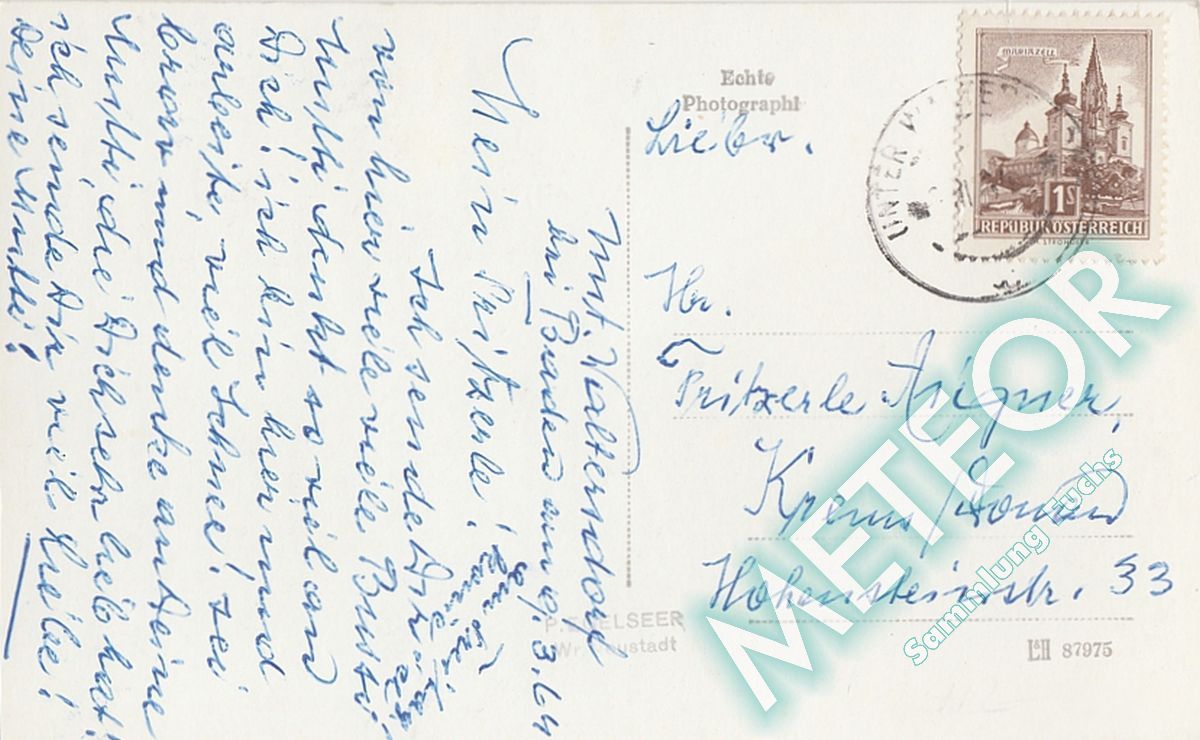 Unt. Waltersdorf
bei Baden am 9.3.64
Mein Fritzerle!
Ich sende Dir
von hier viele viele Bussi
Mutti denkt so viel an
Dich! ich bin hier und
arbeite, viel Schnee! sei
brav und denke an Deine
Mutti, die Dich sehr lieb hat!
ich sende Dir viel Liebe!
Deine Mutti!
Echte
Photographi
Lieber.
Hr.
Fritzerle Aigner,
Krems/Donau
Hohensteinstr. 33
MARIAZELL
1S
REPUBLIK ÖSTERREICH
UNTER
P. LSEER
Wr. Neustadt
L&H 87975
METEOR
Sammlung Fuchs